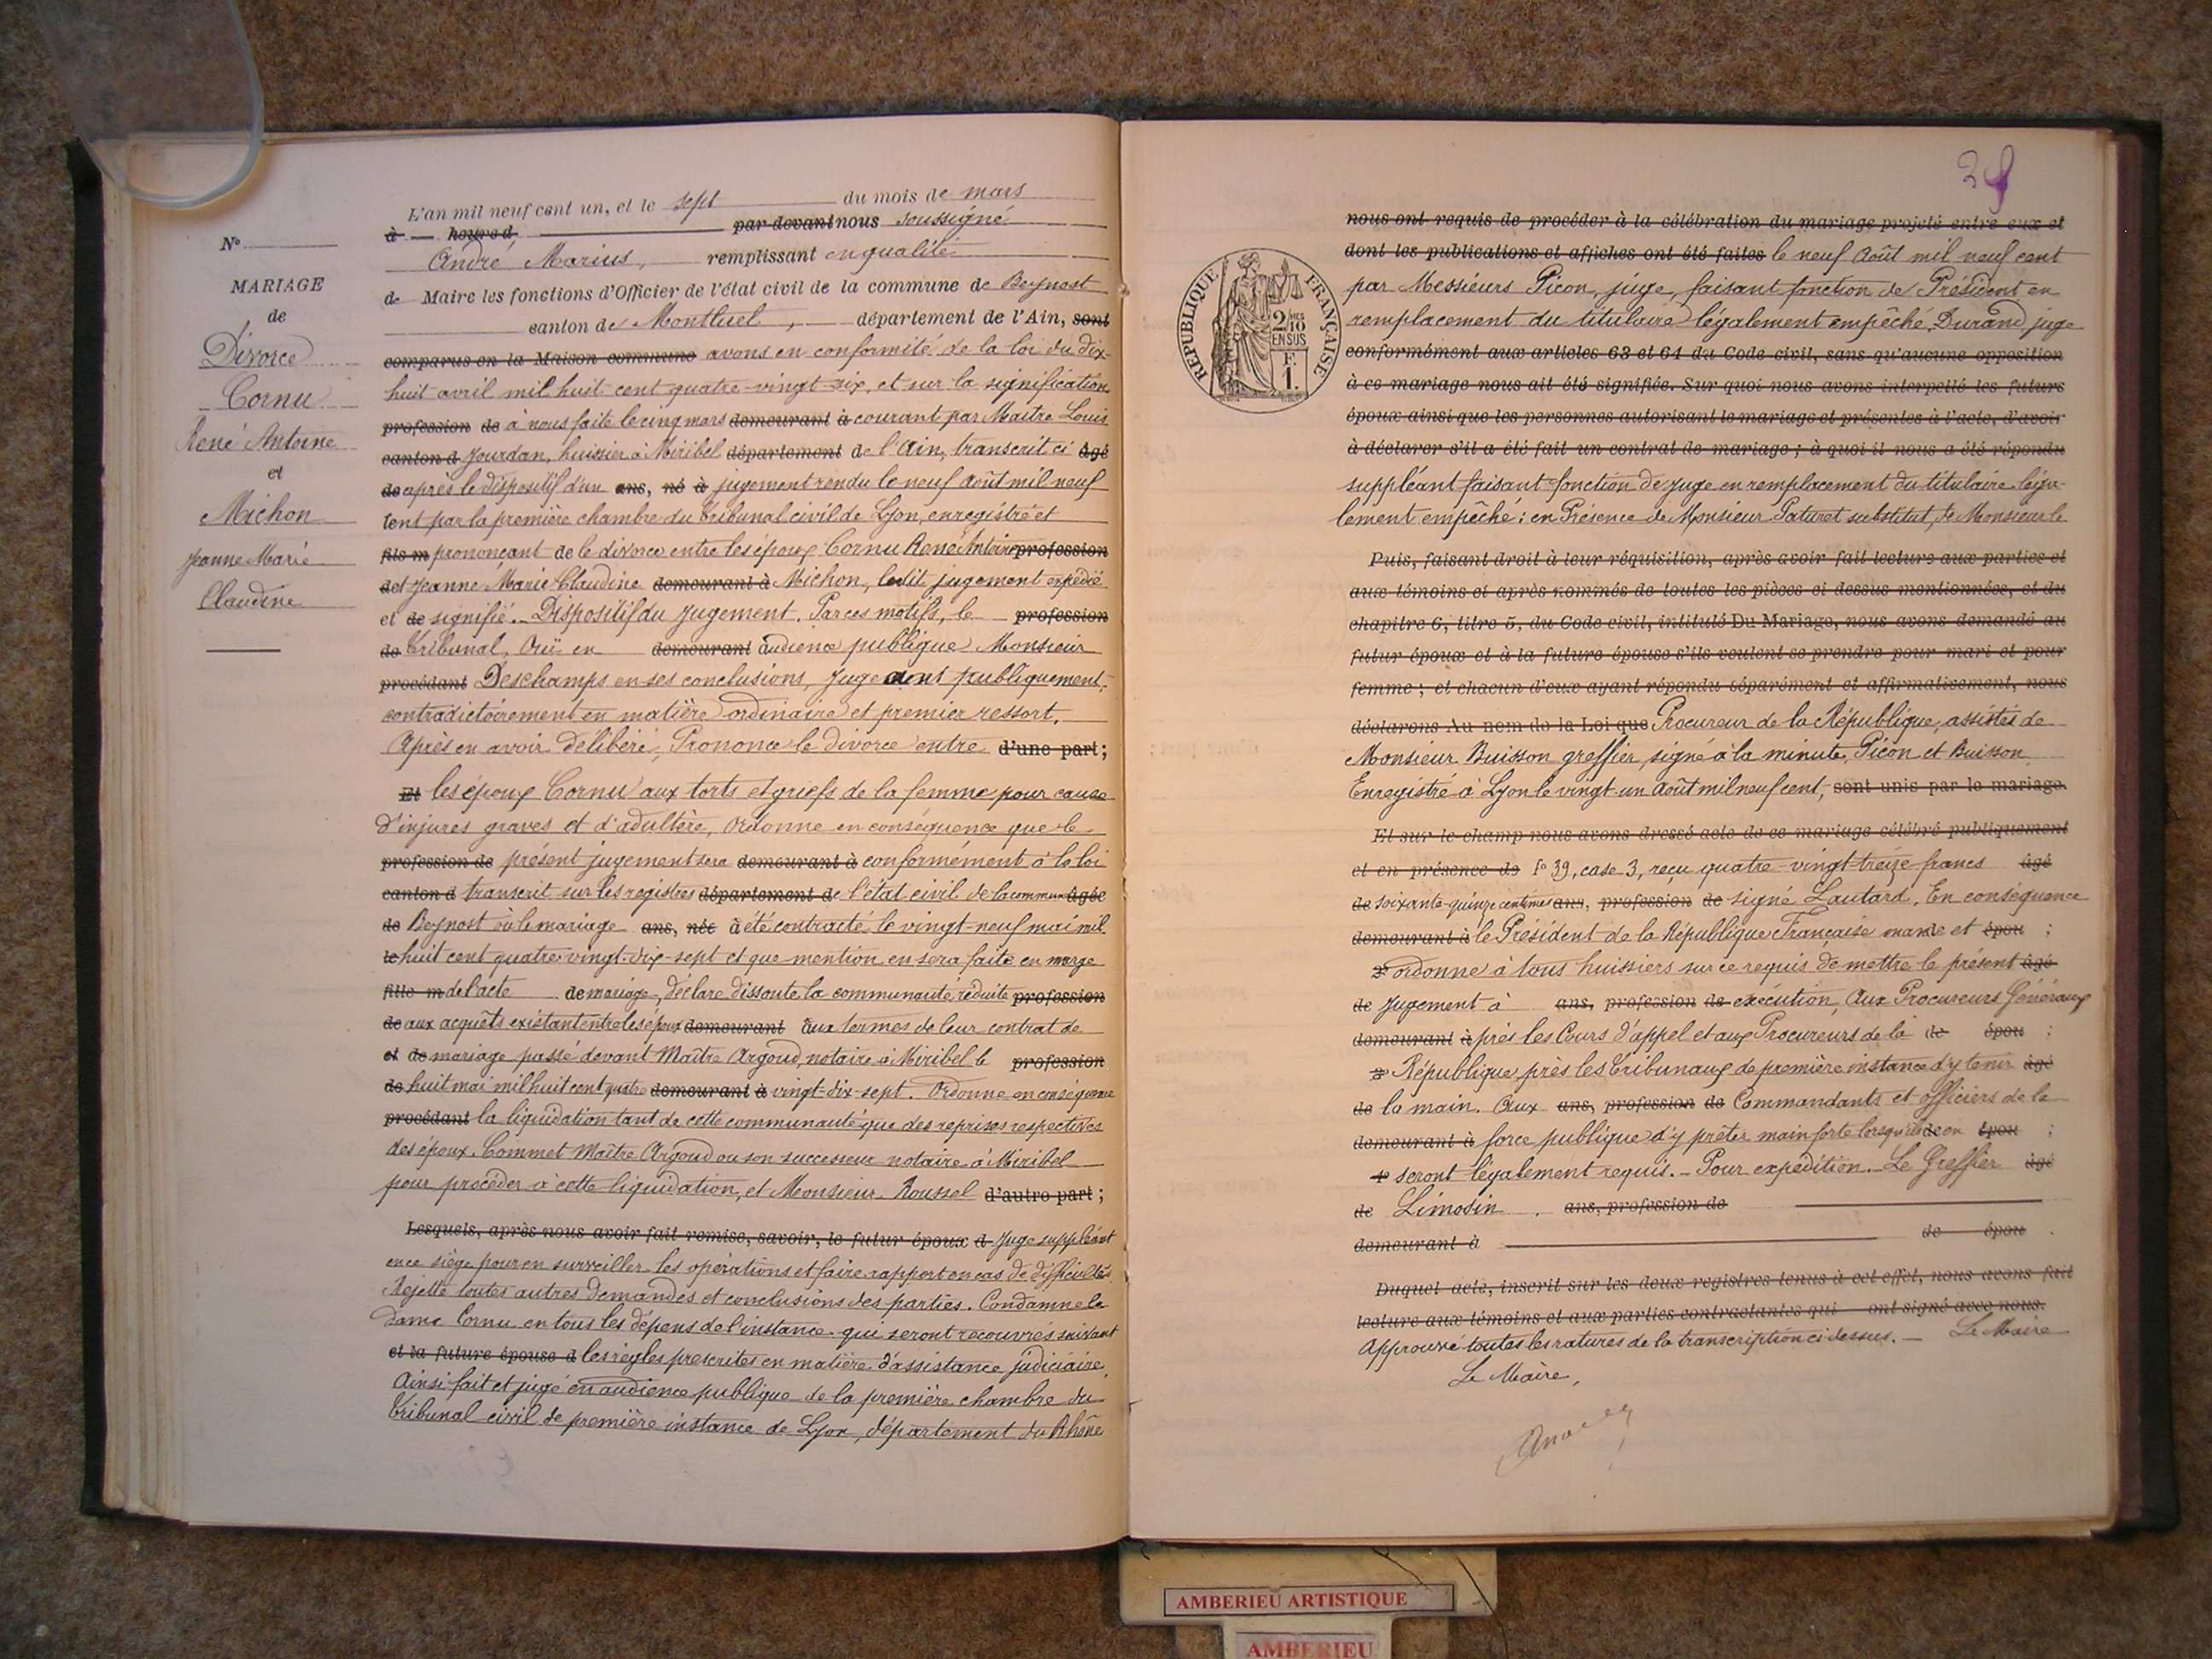 N°
MARIAGE
de
Divorce
Cornu
René Antoine
et
Michon
Jeanne Marie
Claudine
L'an mil neuf cent un, et le sept du mois de mars
à heures d par devant nous soussigné
André Marius, remplissant en qualité
de Maire les fonctions d'Officier de l'état civil de la commune de Beynost
canton de Montluel, département de l'Ain, sont
comparus en la Maison commune avons en conformité de la loi du dix-
huit avril mil huit cent quatre-vingt six, et sur la signification
profession de à nous faite le cinq mars demeurant à courant par Maitre Louis
canton d Jourdan, huissier à Miribel département de l'Ain, transcrit ci âgé
de après le dispositif d'un ans, né à jugement rendu le neuf août mil neuf
cent par la première chambre du Tribunal civil de Lyon, enregistré et
fils m prononçant de le divorce entre les époux Cornu René Antoine profession
de et Jeanne Marie Claudine demeurant à Michon, ledit jugement expédié
et de signifié. _ Dispositif du Jugement. Par ces motifs, le profession
de Tribunal, Ouï en demeurant audience publique Monsieur
procédant Deschamps en ses conclusions, jugeant publiquement,
contradictoirement en matière ordinaire et premier ressort.
Après en avoir délibéré, Prononce le divorce entre d'une part;
Et les époux Cornu aux torts et griefs de la femme pour cause
d'injures graves et d'adultère, Ordonne en conséquence que le
profession de présent jugement sera demeurant à conformément à la loi
canton d transcrit sur les registres département de l'état civil de la commune âgée
de Beynost où le mariage ans, née à été contracté le vingt-neuf mai mil
le huit cent quatre-vingt-dix-sept et que mention en sera faite en marge
fille m de l'acte de mariage, déclare dissoute la communauté réduite profession
de aux acquêts existant entre les époux demeurant aux termes de leur contrat de
et de mariage passé devant Maître Argoud, notaire à Miribel le profession
de huit mai mil huit cent quatre demeurant à vingt-dix-sept. Ordonne en conséquence
procédant la liquidation tant de cette communauté que des reprises respectives
des époux. Commet Maître Argoud ou son successeur notaire à Miribel
pour procéder à cette liquidation, et Monsieur Roussel d'autre part;
Lesquels, après nous avoir fait remise, savoir, le futur époux d Juge suppléant
en ce siège pour en surveiller les opérations et faire rapport en cas de difficultés
Rejette toutes autres demandes et conclusions des parties. Condamne la
Dame Cornu en tous les dépens de l'instance qui seront recouvrés suivant
et la future épouse d les règles prescrites en matière d'assistance judiciaire.
Ainsi fait et jugé en audience publique de la première chambre du
Tribunal civil de première instance de Lyon, département du Rhône
RÉPUBLIQUE FRANÇAISE
2/10
EN SUS
F.
1.
nous ont requis de procéder à la célébration du mariage projeté entre eux et
dont les publications et affiches ont été faites le neuf Août mil neuf cent
par Messieurs Picon, juge, faisant fonction de Président en
remplacement du titulaire légalement empêché, Durand, juge
conformément aux articles 63 et 64 du Code civil, sans qu'aucune opposition
à ce mariage nous ait été signifiée. Sur quoi nous avons interpellé les futurs
époux ainsi que les personnes autorisant le mariage et présentes à l'acte, d'avoir
à déclarer s'il a été fait un contrat de mariage; à quoi il nous a été répondu
suppléant faisant fonction de juge en remplacement du titulaire léga-
lement empêché: en Présence de Monsieur Paturet substitut, de Monsieur le
Puis, faisant droit à leur réquisition, après avoir fait lecture aux parties et
aux témoins ci après nommés de toutes les pièces ci dessus mentionnées, et du
chapitre 6, titre 5, du Code civil, intitulé Du Mariage, nous avons demandé au
futur époux et à la future épouse s'ils veulent se prendre pour mari et pour
femme; et chacun d'eux ayant répondu séparément et affirmativement, nous
déclarons Au nom de la Loi que Procureur de la République, assistés de
Monsieur Buisson greffier, signé à la minute, Picon et Buisson
Enregistré à Lyon le vingt-un Août mil neuf cent, sont unis par le mariage.
Et sur le champ nous avons dressé acte de ce mariage célébré publiquement
et en présence de f° 39, case 3, reçu quatre-vingt-treize francs âgé
de soixante-quinze centimes ans, profession de signé Lautard. En conséquence
demeurant à le Président de la République Française mande et épou ;
ordonne à tous huissiers sur ce requis de mettre le présent âgé
de Jugement à ans, profession de exécution, Aux Procureurs Généraux
demeurant à près les Cours d'appel et aux Procureurs de la de épou ;
République près les Tribunaux de première instance d'y tenir âgé
de la main. Aux ans, profession de Commandants et officiers de la
demeurant à force publique d'y prêter main forte lorsqu'ils de en épou ;
seront légalement requis. _ Pour expédition. _ Le Greffier âgé
de Limosin . ans, profession de
demeurant à de épou .
Duquel acte, inscrit sur les deux registres tenus à cet effet, nous avons fait
lecture aux témoins et aux parties contractantes qui ont signé avec nous.
Approuvé toutes les ratures de la transcription ci dessus. _ Le Maire
Le Maire,
AMBERIEU ARTISTIQUE
AMBERIEU